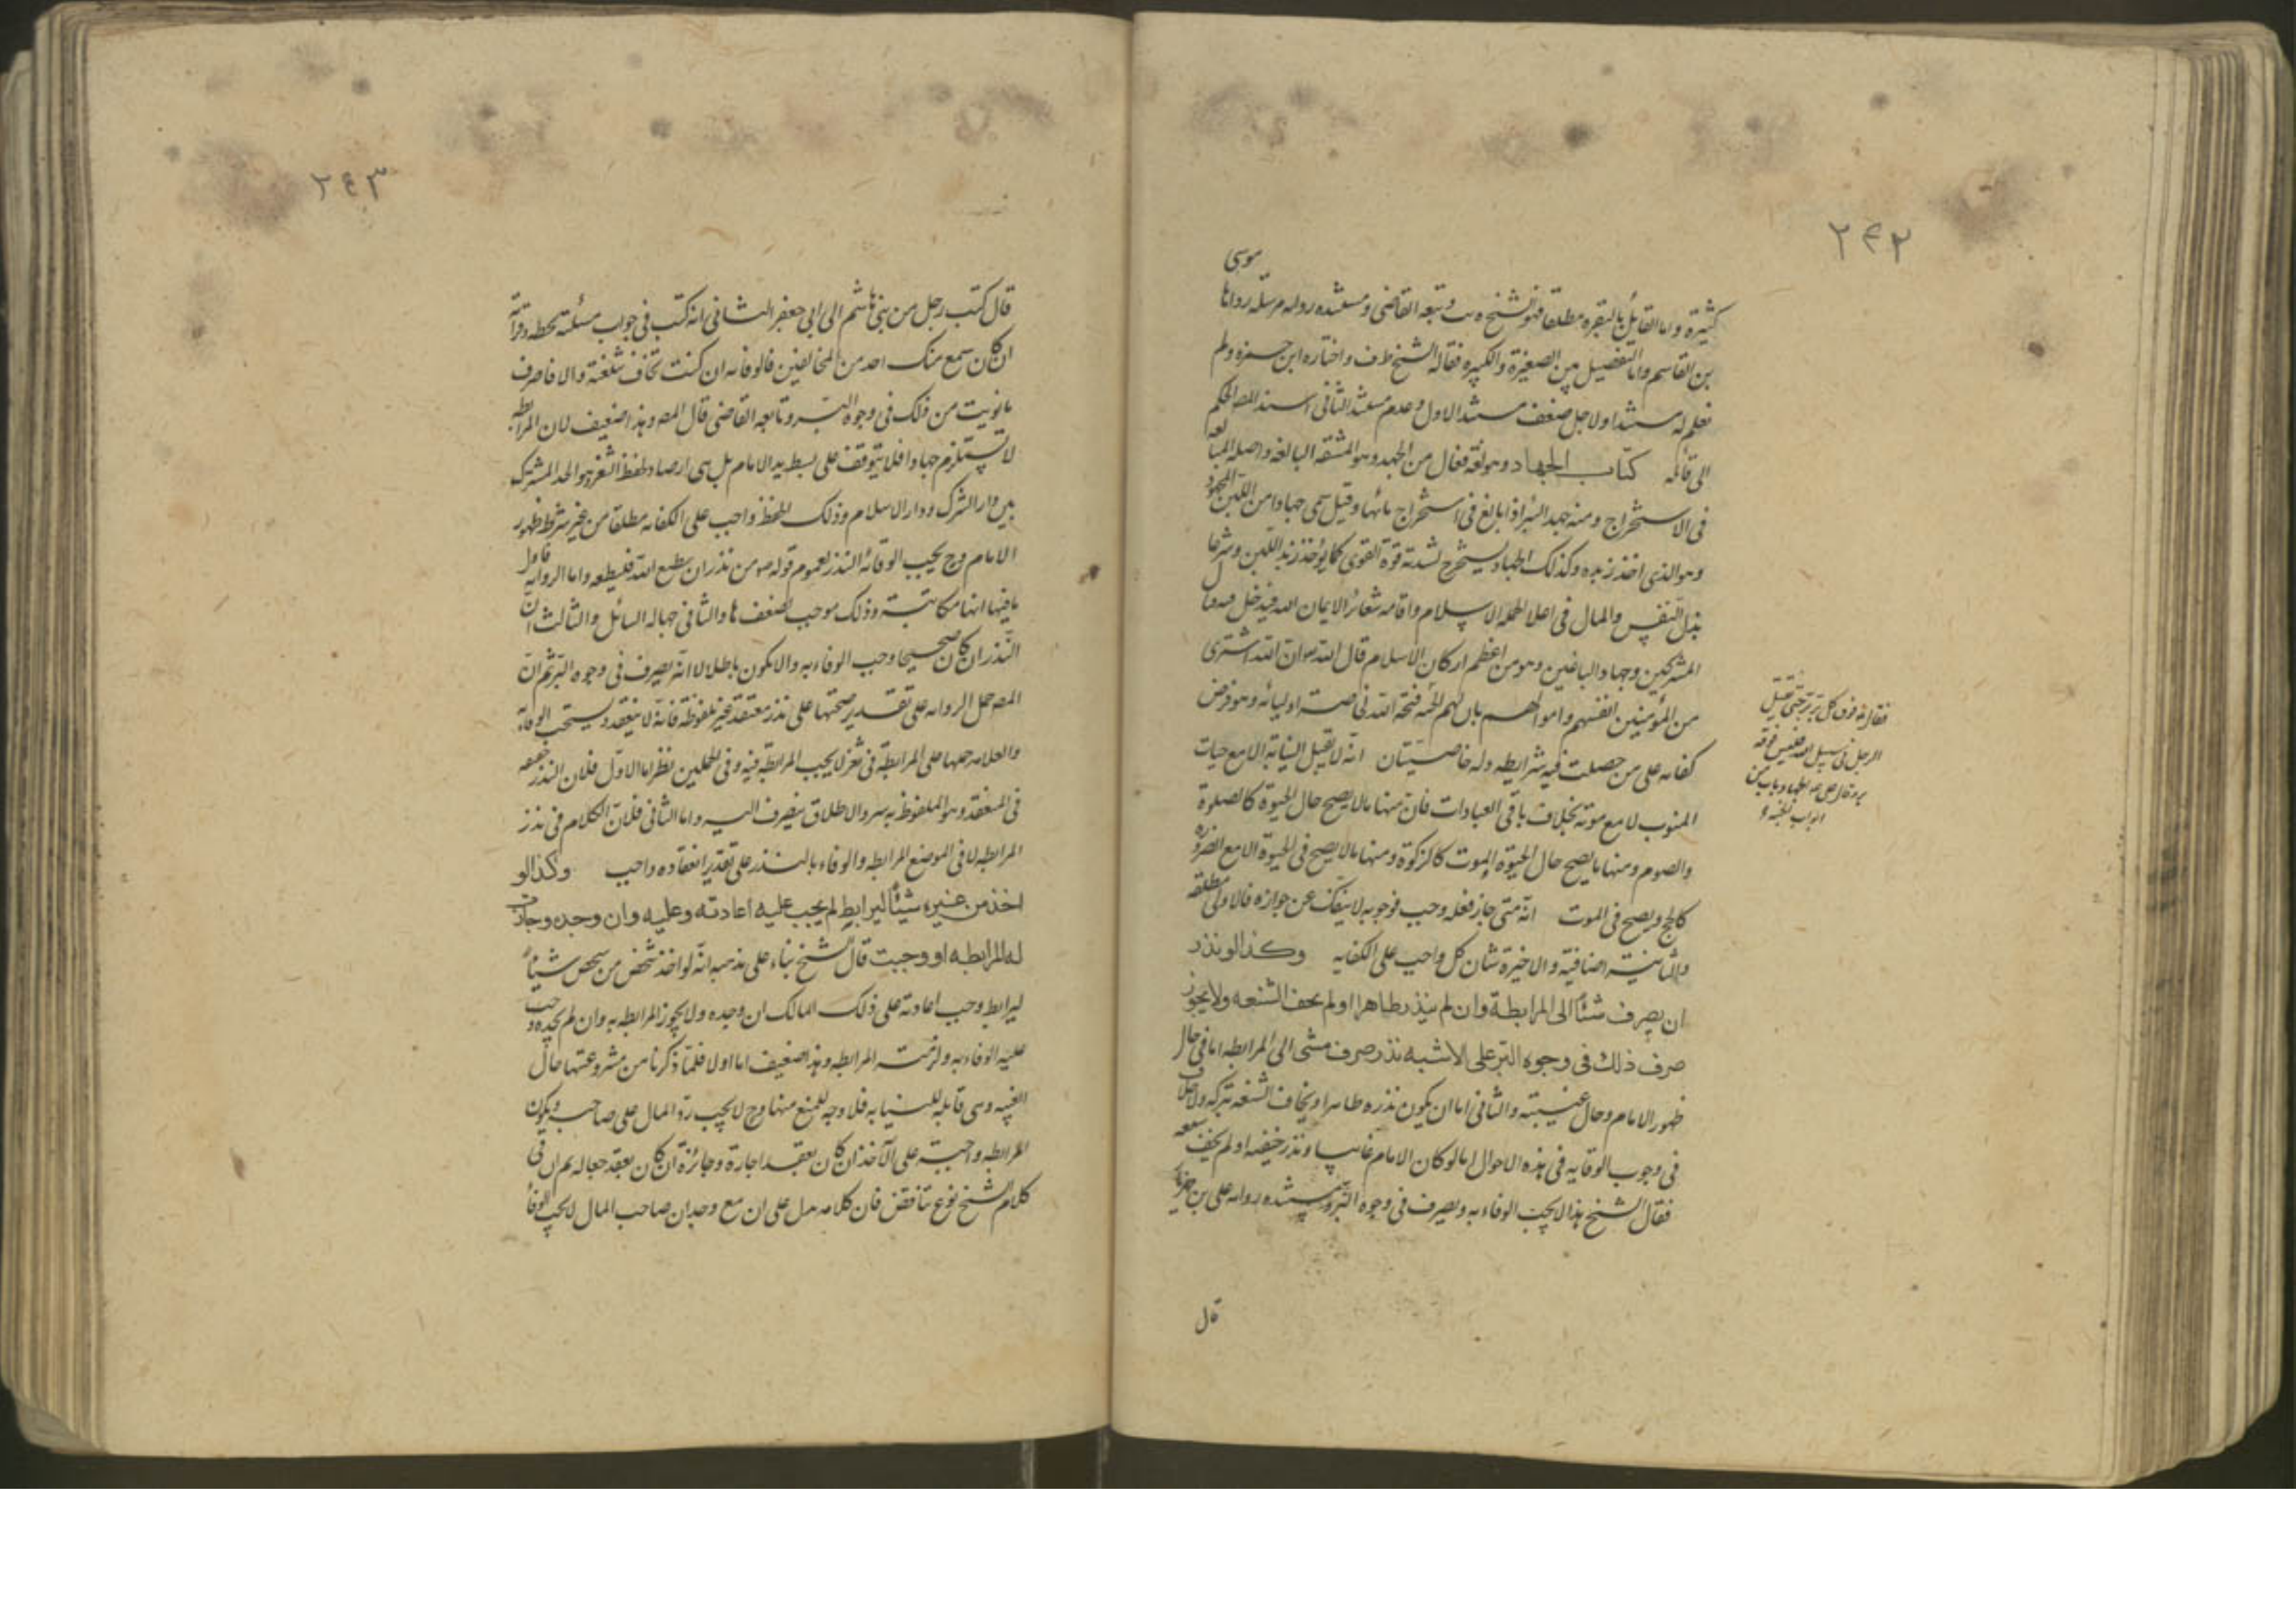 ٢٤٢
موسی
كثيرة واما القايل بالبقره مطلقا فهو الشيخ في يب وتبعه القاضی ومستنده روايه مرسله رواها
بن القاسم واما التفصيل بين الصغيرة والكبيرة فقاله الشيخ ط ف واختاره ابن حمزه ولم
نعلم له مستندا ولاجل ضعف مستند الاول وعدم مستند الثانی اسند المص الحكم
الی قائله كتاب الجهاد وهو لغة فعال من الجهد وهو المشقه البالغه واصله المبالغه
فی الاستخراج ومنه جهد البئر اذا بالغ فی استخراج مائها وقيل سمی جهادا من اللبن المجهود
وهو الذی اخذ زبده وكذلك الجهاد يستخرج لشدته قوة القوی كما يؤخذ زبد اللبن وشرعا
بذل النفس والمال فی اعلا كلمة الاسلام واقامه شعائر الايمان فيدخل
المشركين وجهاد الباغين وهو من اعظم اركان الاسلام قال الله ان الله اشتری
من المؤمنين انفسهم واموالهم بان لهم الجنة فتحه الله لخاصة اوليائه وهو فرض
كفايه علی من حصلت فيه شرايطه وله خاصيتان انه لا تقبل النيابة الا مع حيات
المنوب لا مع موته بخلاف باقی العبادات فان منها ما لا يصح حال الحيوة كالصلوة
والصوم ومنها ما يصح حال الحيوة والموت كالزكوة ومنها ما لا يصح فی الحيوة الا مع الضروره
كالحج ويصح فی الموت انه متی جاز فعله وجب فوجوبه لا ينفك عن جوازه فالاولی مطلقه
والثانية اضافية والاخيرة شان كل واجب علی الكفايه وكذا لو نذر
ان يصرف شئا الی المرابطة وان لم ينذر ظاهرا او لم يخف الشنعه ولا يجوز
صرف ذلك فی وجوه البر علی الاشبه نذر صرف شئ الی المرابطه اما فی حال
ظهور الامام وحال غيبته والثانی اما ان يكون نذره ظاهرا ويخاف الشنعه بتركه ولا خلاف
فی وجوب الوفا به فی هذه الاحوال اما لو كان الامام غائبا ونذر خفيه او لم يخف شنعه
فقال الشيخ هذا لا يجب الوفاء به ويصرف فی وجوه البر ومستنده روايه علی بن مهزيار
قال
فقال فوق كل بر بر حتی يقتل
الرجل فی سبيل الله فليس فوقه
بر وقال الجهاد باب من
ابواب الجنه
٢٤٣
قال كتب رجل من بنی هاشم الی ابی جعفر الثانی انه كتب فی جواب مسئلته بخطه وقرأته
ان كان سمع منك احد من المخالفين فالوفا به ان كنت تخاف شنعته والا فاصرف
ما نويت من ذلك فی وجوه البر وتابعه القاضی قال المص وهذا ضعيف لان المرابطه
لا تستلزم جهادا فلا يتوقف علی بسط يد الامام بل هی ارصاد لحفظ الثغر وهو الحد المشترك
بين دار الشرك ودار الاسلام وذلك الحفظ واجب علی الكفايه مطلقا من غير شرط ظهور
الامام وح يجب الوفا بالنذر لعموم قوله من نذر ان يطيع الله فليطعه واما الروايه فاول
ما فيها انها مكاتبة وذلك موجب لضعفها والثانی جهاله السائل والثالث ان
النذر ان كان صحيحا وجب الوفاء به والا يكون باطلا لا انه يصرف فی وجوه البر ثم ان
المص حمل الروايه علی تقدير صحتها علی نذر معتقد غير ملفوظة فانه لا ينعقد ويستحب الوفاء
والعلامه حملها علی المرابطة فی ثغر لا يجب المرابطة فيه وفی الحملين نظر اما الاول فلان النذر حقيقه
فی المنعقد وهو الملفوظ به والاطلاق ينصرف اليه واما الثانی فلان الكلام فی نذر
المرابطه لا فی الموضع المرابطه والوفاء بالنذر علی تقدير انعقاده واجب وكذا لو
اخذ من غيره شيئا ليرابط لم يجب عليه اعادته وعليه وان وجده وجازت
له المرابطه او وجبت قال الشيخ بناء علی مذهبه انه لو اخذ شخص من شخص شيئا
ليرابط وجب اعادته علی ذلك المالك ان وجده ولا يجوز المرابطه به وان لم يجده وجب
عليه الوفاء به ولزمته المرابطه وهذا ضعيف اما اولا فلما ذكرنا من مشروعيتها حال
الغيبه وهی قابله للنيابه فلا وجه للمنع منها وح لا يجب رد المال علی صاحبه ويكون
المرابطه واجبة علی الآخذ ان كان بعقد اجارة وجائزة ان كان بعقد جعاله ثم ان فی
كلام الشيخ نوع تناقض فان كلامه يدل علی ان مع وجدان صاحب المال لا يجب الوفا